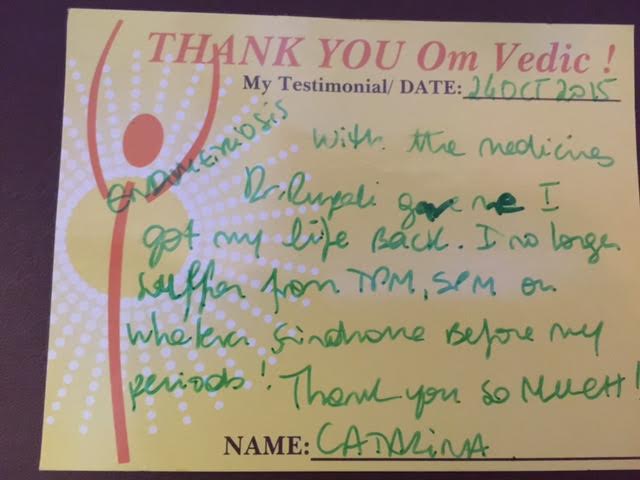 THANK YOU Om Vedic !
My Testimonial/ DATE: 24 OCT 2015
ENDOMETRIOSIS
With the medicines
Dr. Rupali gave me I
got my life BACK. I no longer
suffer from TPM, SPM or
whatever sindrome Before my
periods! Thank you so MUCH!
NAME: CATARINA